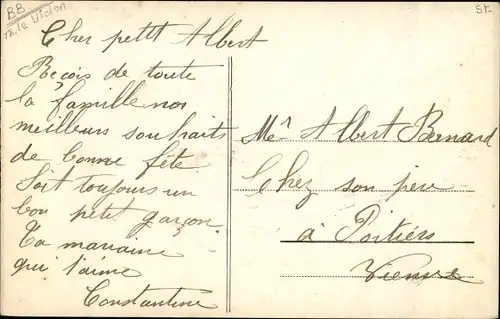 BB
St.
Cher petit Albert
Reçois de toute
la famille nos
meilleurs souhaits
de bonne fête
Soit toujours un
bon petit garçon.
Ta marraine
qui t'aime
Constantine
Mr Albert Bernard
Chez son père
à Poitiers
Vienne